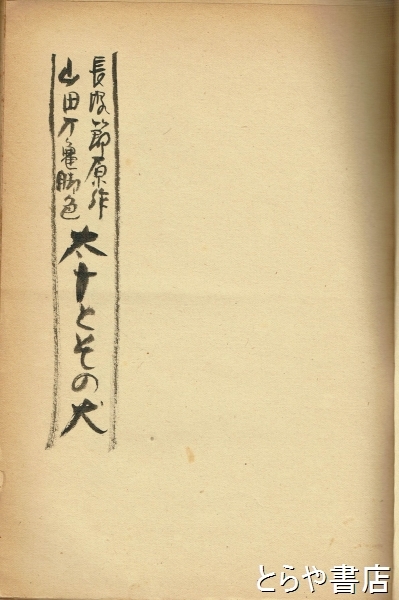 長塚節原作
山田丁亀脚色
太十とその犬
とらや書店